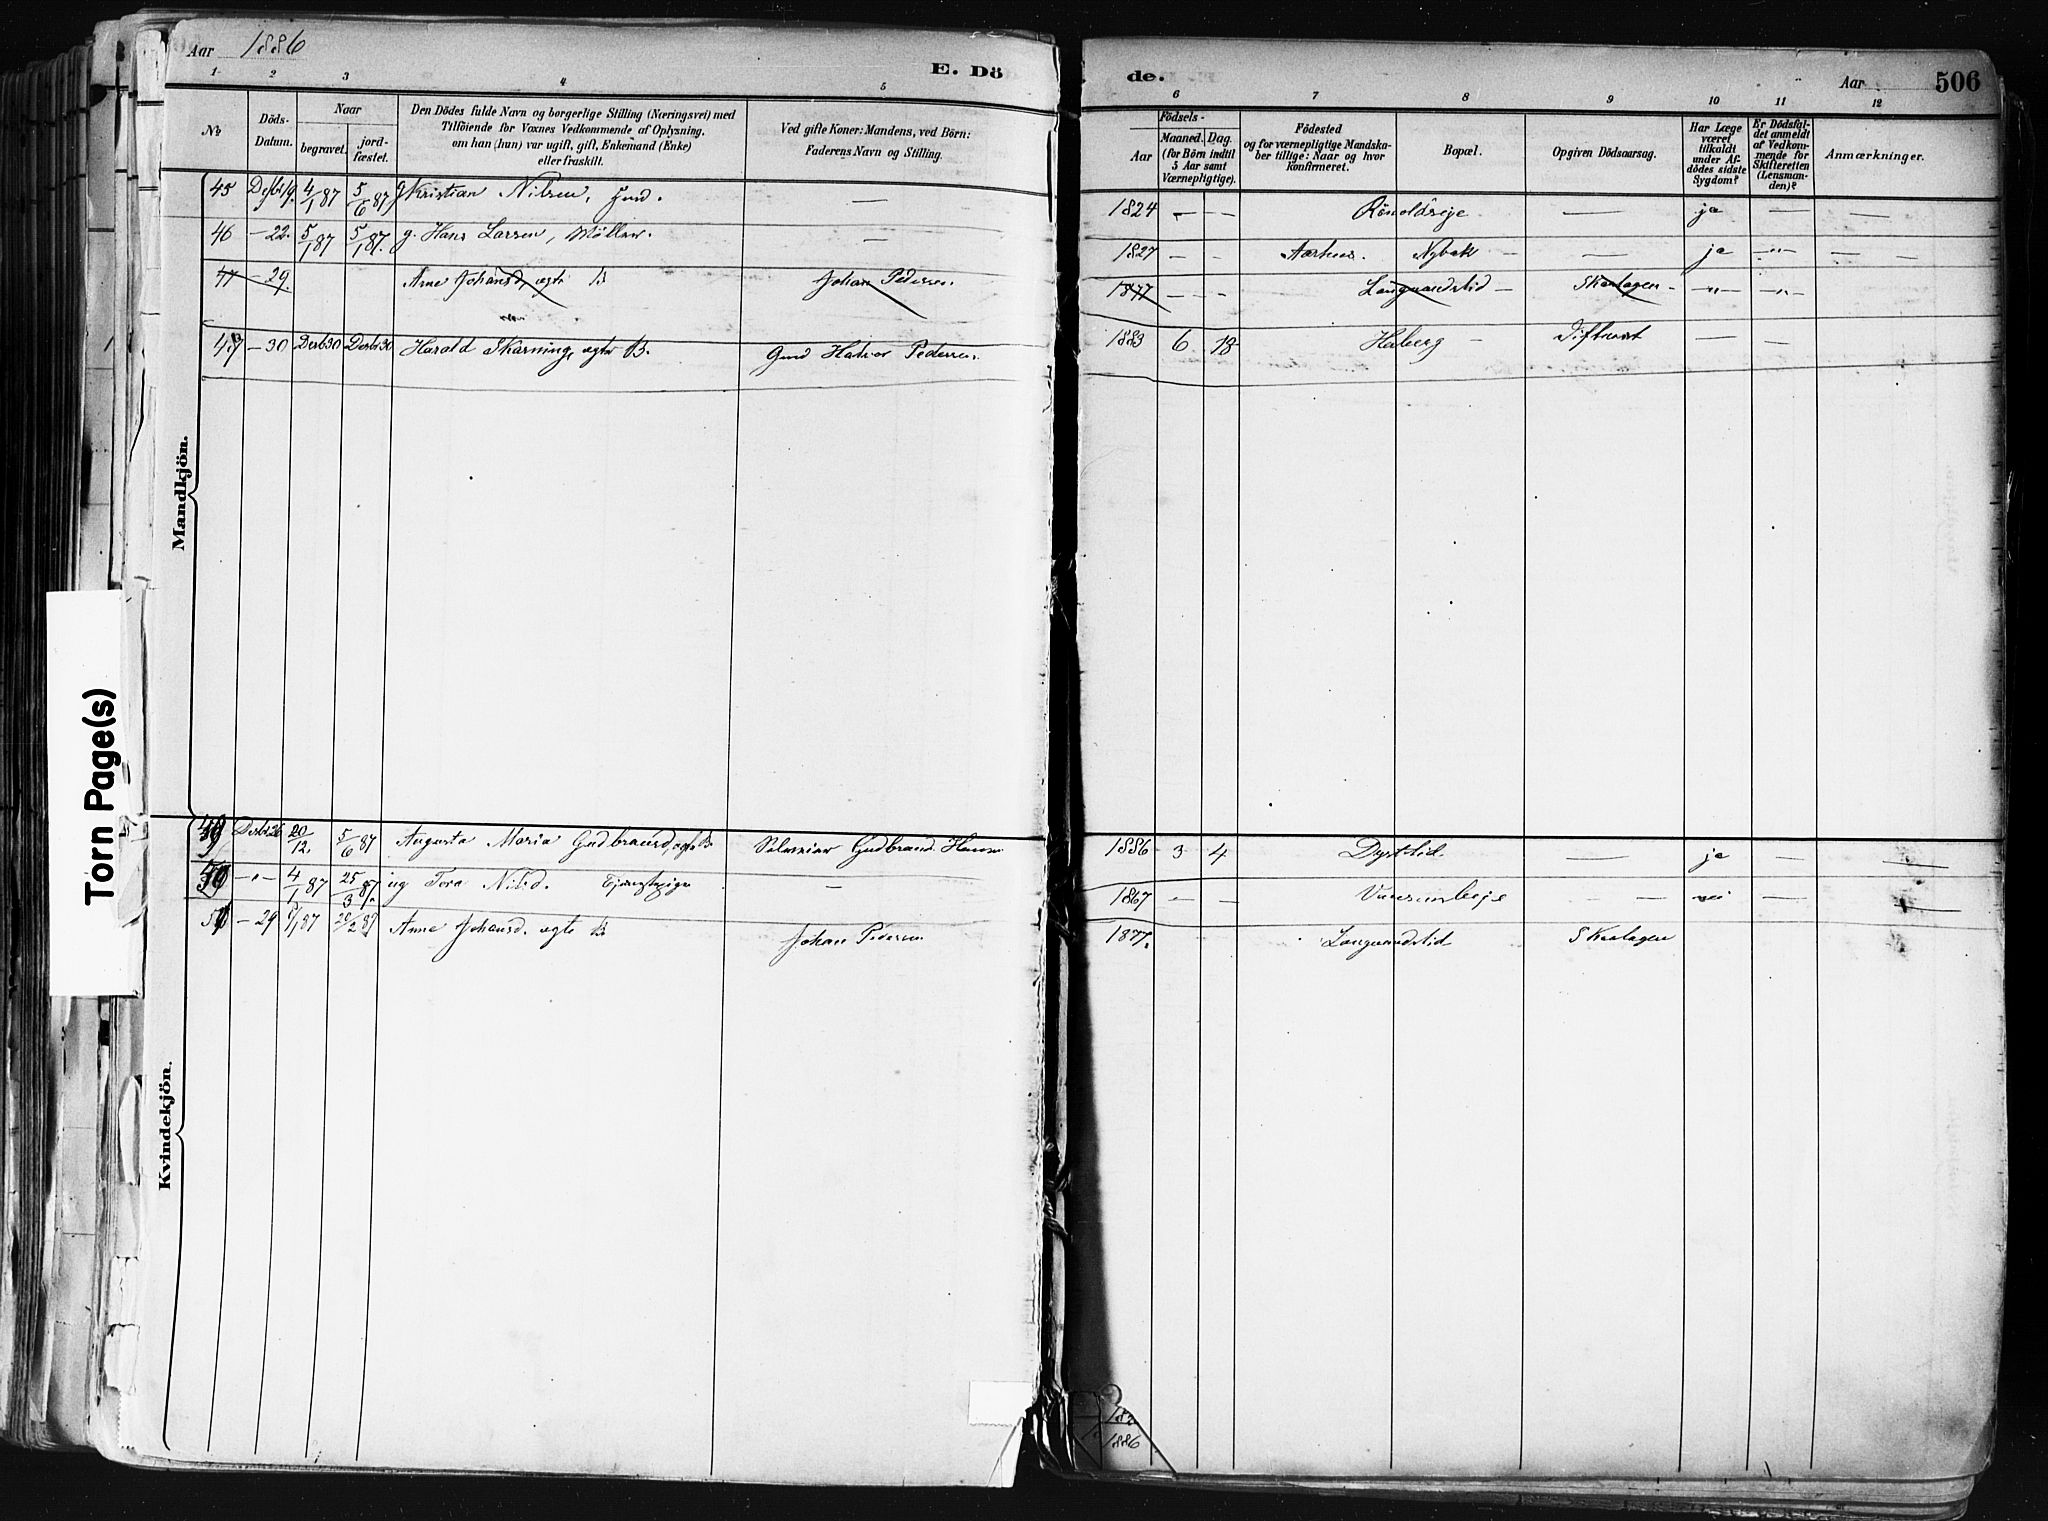 Aar 1886
E. Dö
de.
Aar
506
1 2 3 4 5
6 7 8 9 10 11 12
No
Döds-Datum.
Naar
begravet.
jord-fæstet.
Den Dödes fulde Navn og borgerlige Stilling (Næringsvei) med
Tilföiende for Voxnes Vedkommende af Oplysning,
om han (hun) var ugift, gift, Enkemand (Enke)
eller fraskilt.
Ved gifte Koner: Mandens, ved Börn:
Faderens Navn og Stilling.
Födsels-
Aar
Maaned. Dag.
(for Börn indtil
5 Aar samt
Værnepligtige).
Födested
og for værnepligtige Mandska-
ber tillige: Naar og hvor
konfirmeret.
Bopæl.
Opgiven Dödsaarsag.
Har Læge
været
tilkaldt
under Af-
dödes sidste
Sygdom?
Er Dödsfal-
det anmeldt
af Vedkom-
mende for
Skifteretten
(Lensman-
den)?
Anmærkninger.
Mandkjön.
45 4/1 87 5/6 87 g Kristian Nilsen, — 1824 — — — ja — —
46 — 22. 5/1 87 5/1 87. g. Hans Larsen, Møller. — 1827 — — Aarhus. Nybak — — ja — " — — —
47 — 29. Arne Johansd, ægte B Johan Pedersen 1877 — — — — Skarlagen — — " — — " —
47 — 30 Desb 30 Desb 30 Harald Skarning, ægte B. Gmd Halvor Pedersen. 1883 6 18 Haberg — — —
Torn Page(s)
Kvindekjön.
49 Desb 26 20/12. 5/6 87 Augusta Maria Gudbransd, ægte B. Gudbrand Hansen 1886 3 4 — ja — —
50 — " — 4/1 87 25/3 87. ug Tora Nilsd. Tjenestepige — 1867 — — — — nei — —
51 — 29 87 87 Anne Johansd. ægte B. Johan Pedersen 1877. Skarlagen
182
1886